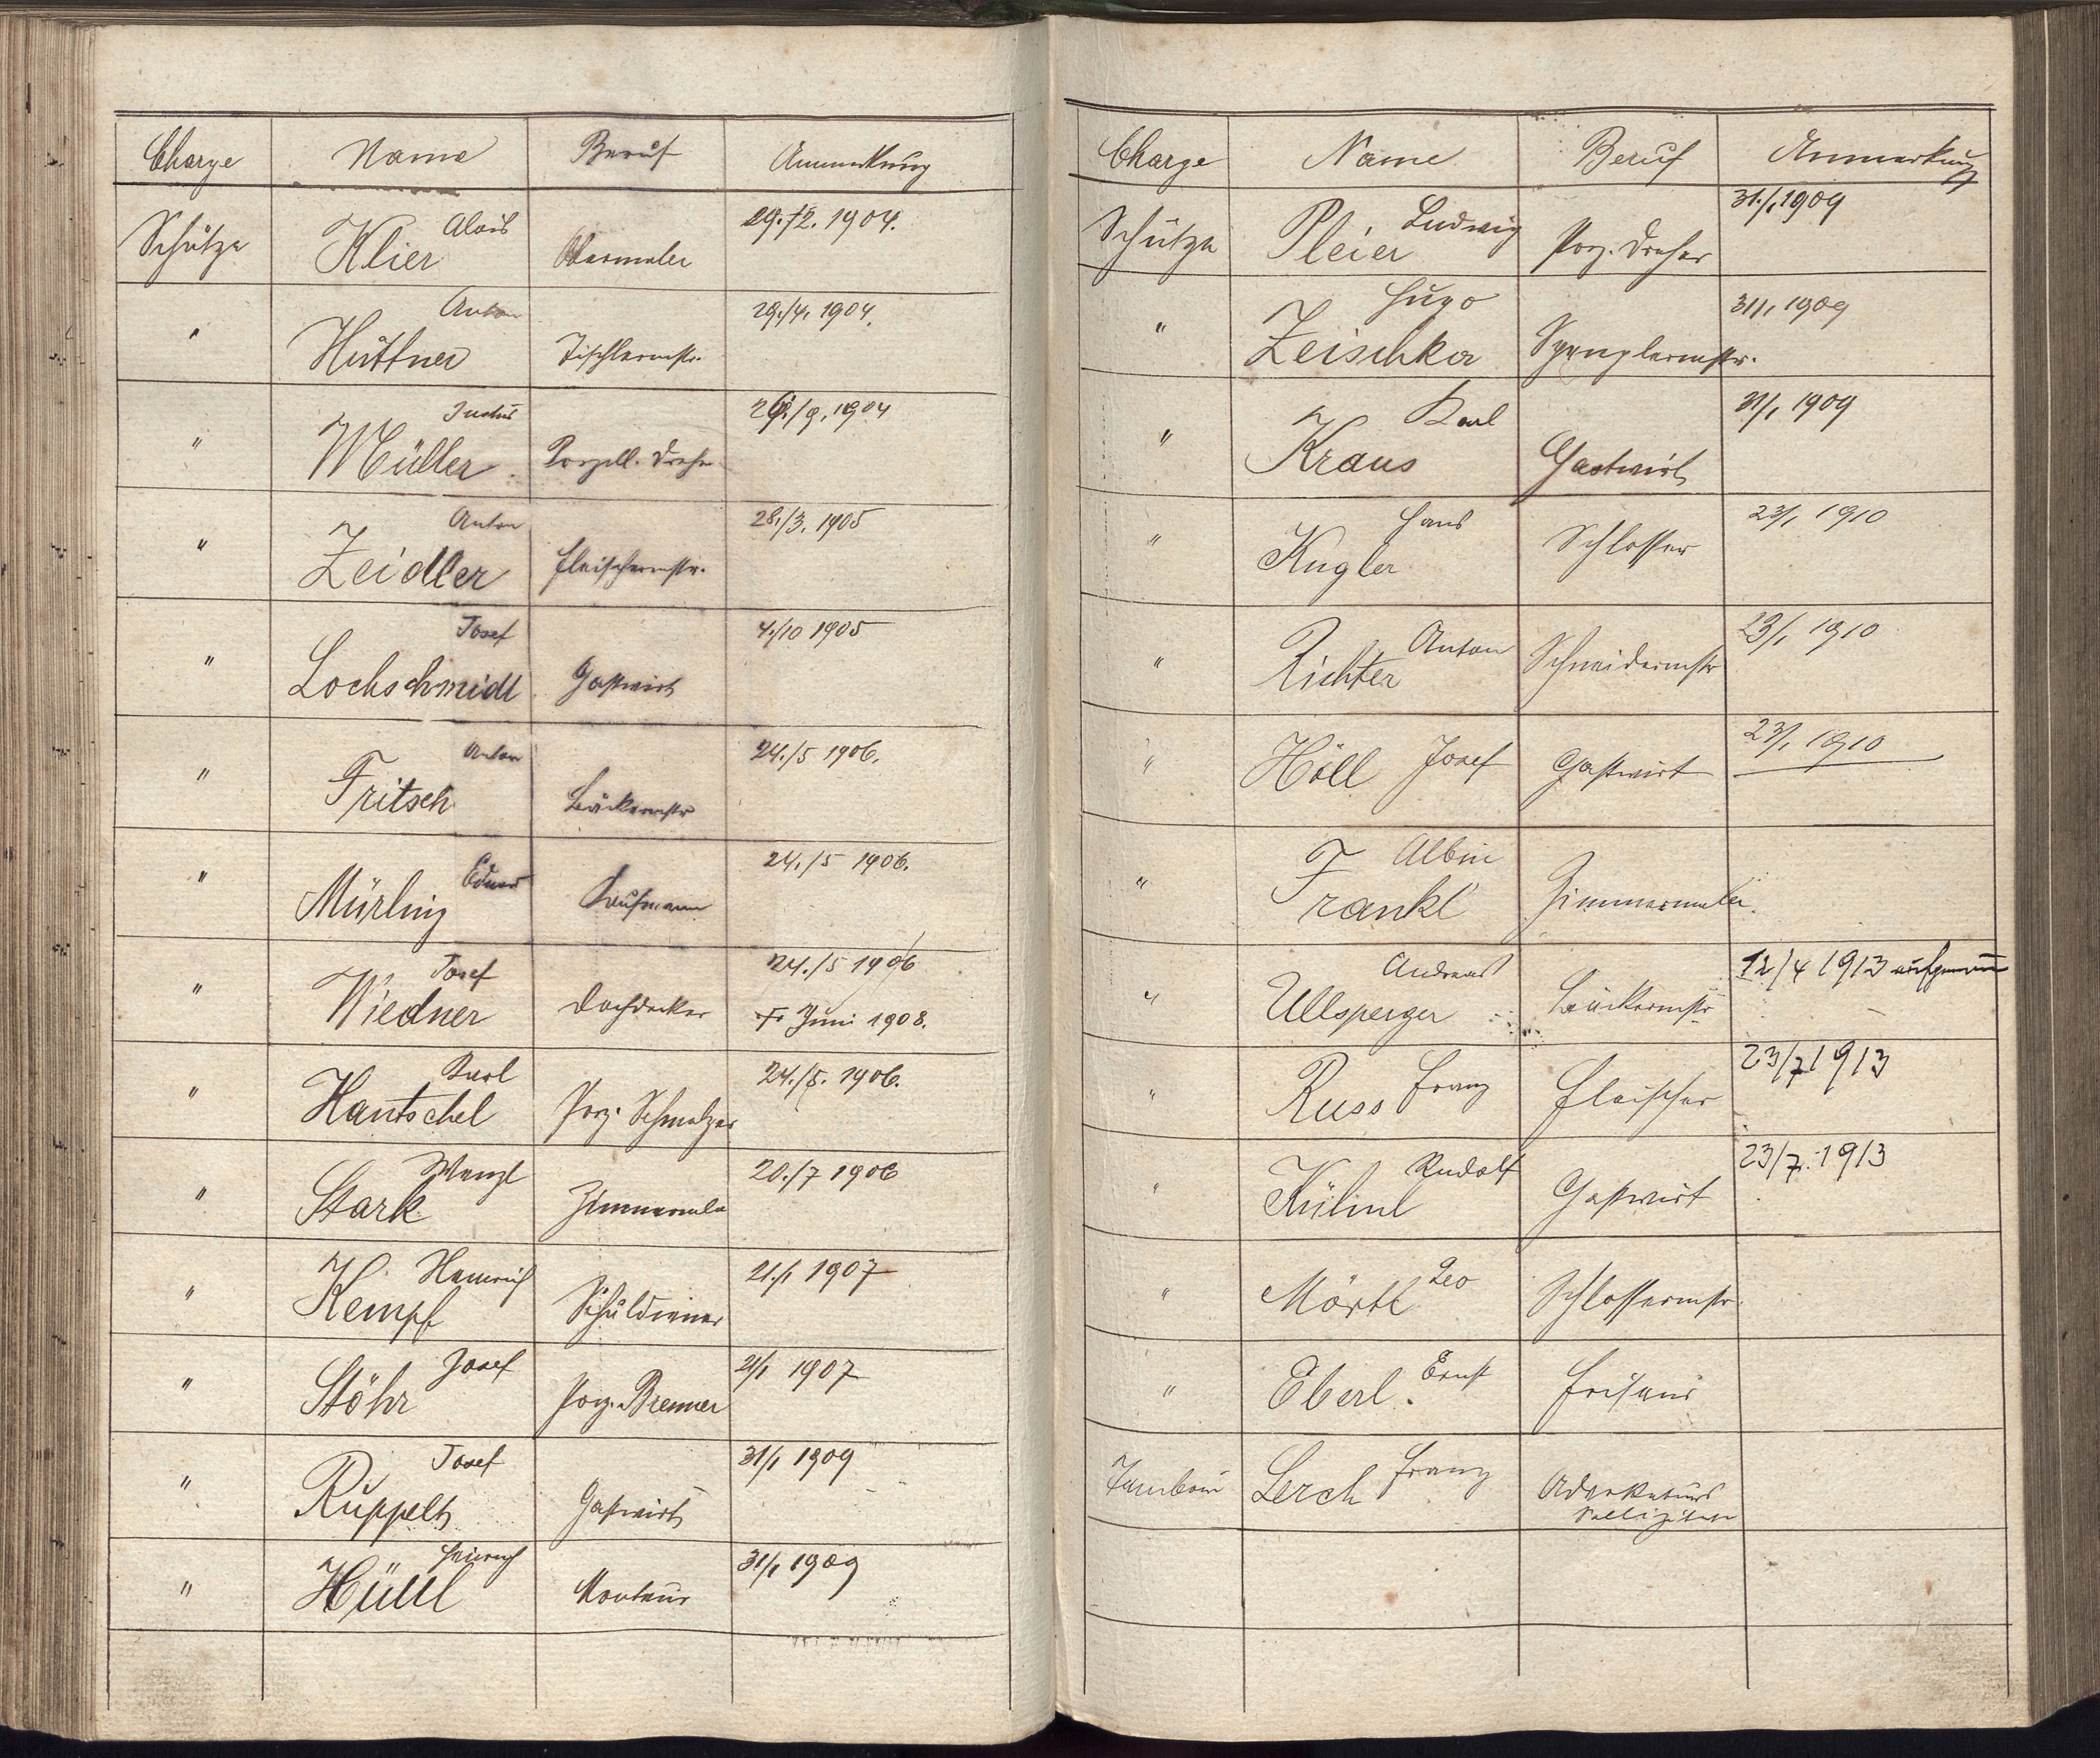 Charge Name Beruf Anmerkung
Schütze Klier Alois Obermaler 29./2. 1904.
" Huttner Anton Tischlermstr. 29./4. 1904.
" Müller Porzell. Dreher /9. 1904
" Zeidler Anton Fleischermstr. 28./3. 1905
" Lochschmidt Josef Gastwirt 4./10 1905
" Fritsch Anton Bäckermstr 24./5 1906.
" Mürling Eduard Kaufmann 24./5 1906.
" Wiedner Josef Dachdecker 24./5 1906
† Juni 1908.
" Hantschel Karl Porz. Schmelzer 24./5. 1906.
" Stark Wenzl Zimmermaler 20./7 1906
" Kempf Heinrich Schuldiener 21./1 1907
" Stöhr Josef Porz. Brenner 21/1 1907
" Ruppelt Josef Gastwirt 31/1 1909
" Hüttl Heinrich Monteur 31/1 1909
Charge Name Beruf Anmerkung
Schütze Pleier Ludwig Porz. Dreher 31./1 1909
" Zeischka Hugo Spenglermstr. 31/1 1909
" Kraus Karl Gastwirt 31/1 1909
" Kugler Hans Schlosser 23/1 1910
" Richter Anton Schneidermstr 23/1 1910
" Höll Josef Gastwirt 23/1 1910
" Frankl Albin Zimmermaler.
" Ullsperger Andreas Bäckermstr 12/4 1913 aufgenommen
" Russ Franz Fleischer 23/7 1913
" Rudolf Gastwirt 23/7. 1913
" Mörtl Leo Schlossermstr.
" Eberl. Ernst Friseur
Tambour Lerch Franz Advokaturs
Sollizitator